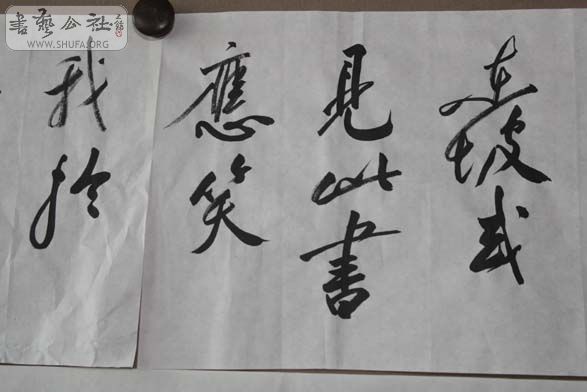 東坡或
見此書
應笑
我於
書藝公社
WWW.SHUFA.ORG